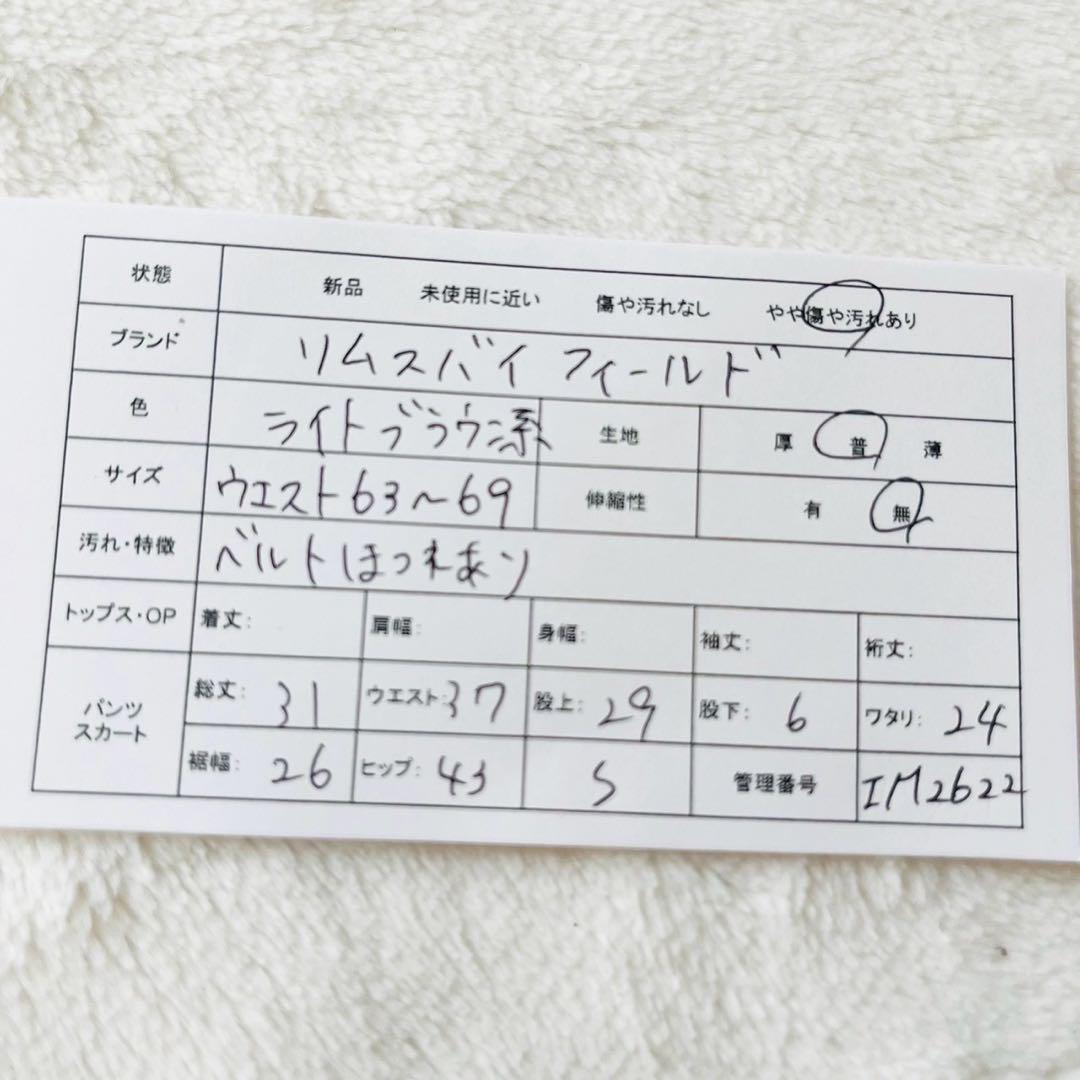 状態 新品 未使用に近い 傷や汚れなし やや傷や汚れあり
ブランド リムスバイ フィールド
色 ライトブラウン系 生地 厚 普 薄
サイズ ウエスト63〜69 伸縮性 有 無
汚れ・特徴 ベルトほつれあり
トップス・OP 着丈: 肩幅: 身幅: 袖丈: 裄丈:
パンツ スカート 総丈: 31 ウエスト: 37 股上: 29 股下: 6 ワタリ: 24
裾幅: 26 ヒップ: 43 S 管理番号 IM2622